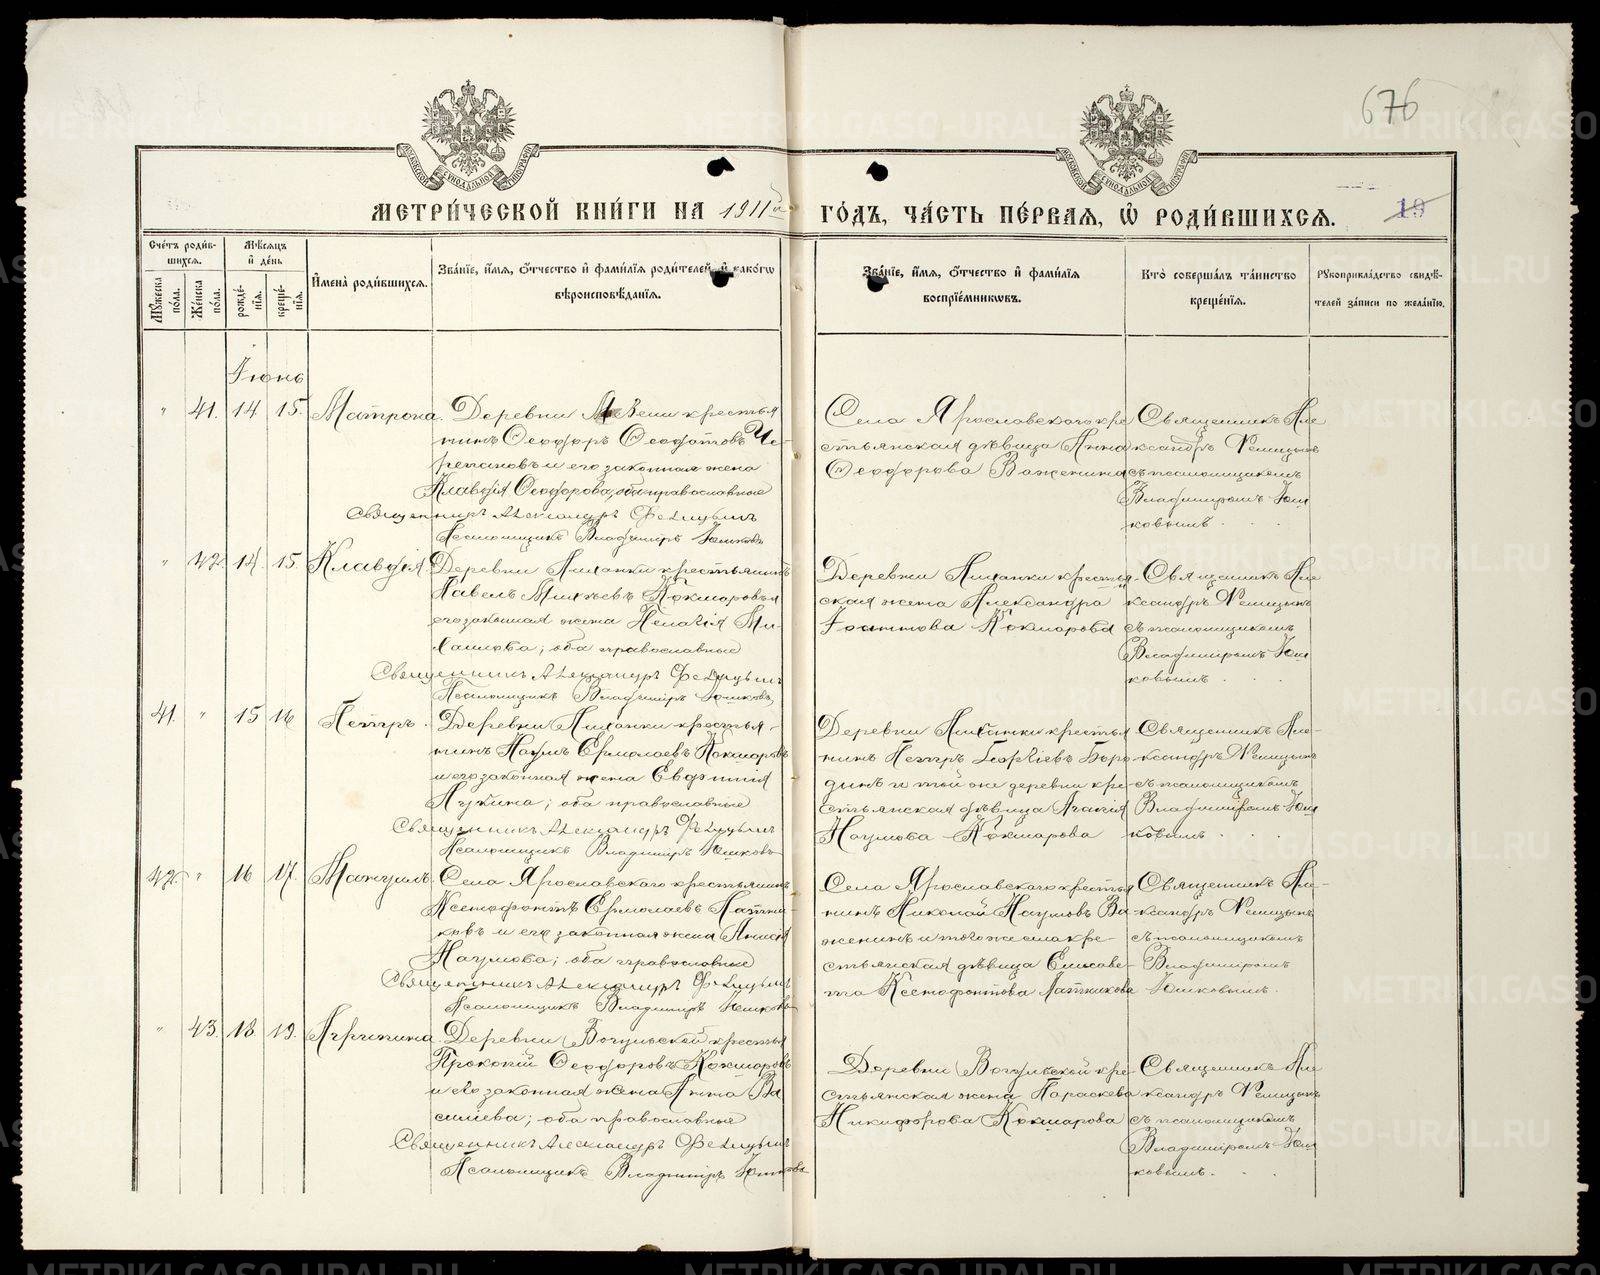 676
МЕТРИ́ЧЕСКОЙ КНИ́ГИ НА 1911й
ГО́ДЪ, ЧА́СТЬ ПЕ́РВАЯ, Ѡ҆ РОДИ́ВШИХСЯ.
19
Сче́тъ роди́в-
шихся.
Мѣ́сяцъ
и҆ де́нь
Му́жеска по́ла.
Же́нска по́ла.
рожде́-
нїя.
креще́-
нїя.
И҆мена̀ роди́вшихся.
Зва́нїе, и҆́мя, ѻ҆́тчество и҆ фами́лїя роди́телей, и҆ како́гѡ
вѣроисповѣ́данїя.
Зва́нїе, и҆́мя, ѻ҆́тчество и҆ фами́лїя
воспрїе́мникѡвъ.
Кто̀ соверша́лъ та́инство
креще́нїя.
Рꙋкоприкла́дство свидѣ́-
телей за́писи по жела́нїю.
Іюнь
" 41. 14 15. Матрона.
Деревни крестья
нинъ Ѳеодоръ Ѳеодотовъ Че-
репановъ и его законная жена
Клавдія Ѳеодорова, оба православные
Священникъ Александръ Фелицынъ
Псаломщикъ Владиміръ Юшковъ
Села Ярославскаго кре
стьянская дѣвица Анна
Ѳеодорова Важенина
Священникъ Але
ксандръ Фелицынъ
съ псаломщикомъ
Владиміромъ Юш
ковымъ . .
" 42. 14. 15. Клавдія.
Деревни крестьянинъ
Павелъ Кокшаровъ и
его законная жена Пелагія Ми-
хаилова; оба православные
Священникъ Александръ Фелицынъ
Псаломщикъ Владиміръ Юшковъ
Деревни крестья-
ская жена Александра
Кокшарова
Священникъ Але
ксандръ Фелицынъ
съ псаломщикомъ
Владиміромъ Юш
ковымъ . .
41. " 15 16 Петръ.
Деревни крестья-
нинъ Наумъ Ермолаевъ Кокшаровъ
и его законная жена Евфимія
Лукина; оба православные
Священникъ Александръ Фелицынъ
Псаломщикъ Владиміръ Юшковъ
Деревни крестья
нинъ Петръ Георгіевъ Боро
динъ и той же деревни кре-
стьянская дѣвица Агапія
Наумова Кокшарова
Священникъ Але-
ксандръ Фелицынъ
съ псаломщикомъ
Владиміромъ Юш
ковымъ . .
42. " 16 17. Мануилъ.
Села Ярославскаго крестьянинъ
Ксенофонтъ Ермолаевъ Латни-
ковъ и его законная жена Анисія
Наумова; оба православные
Священникъ Александръ Фелицынъ
Псаломщикъ Владиміръ Юшковъ
Села Ярославскаго крестья
нинъ Николай Наумовъ Ва
женинъ и того же села кре-
стьянская дѣвица Елисаве-
та Ксенофонтова Латникова
Священникъ Але-
ксандръ Фелицынъ
съ псаломщикомъ
Владиміромъ
Юшковымъ.
" 43. 18 19. Агриппина
Деревни Вогульской крестья
Прокопій Ѳеодоровъ Кокшаровъ
и его законная жена Анна Ва
сильева; оба православные
Священникъ Александръ Фелицынъ
Псаломщикъ Владиміръ Юшковъ
Деревни Вогульской кре-
стьянская жена Параскева
Никифорова Кокшарова
Священникъ Але
ксандръ Фелицынъ
съ псаломщикомъ
Владиміромъ Юш
ковымъ. . .
METRIKI.GASO-URAL.RU